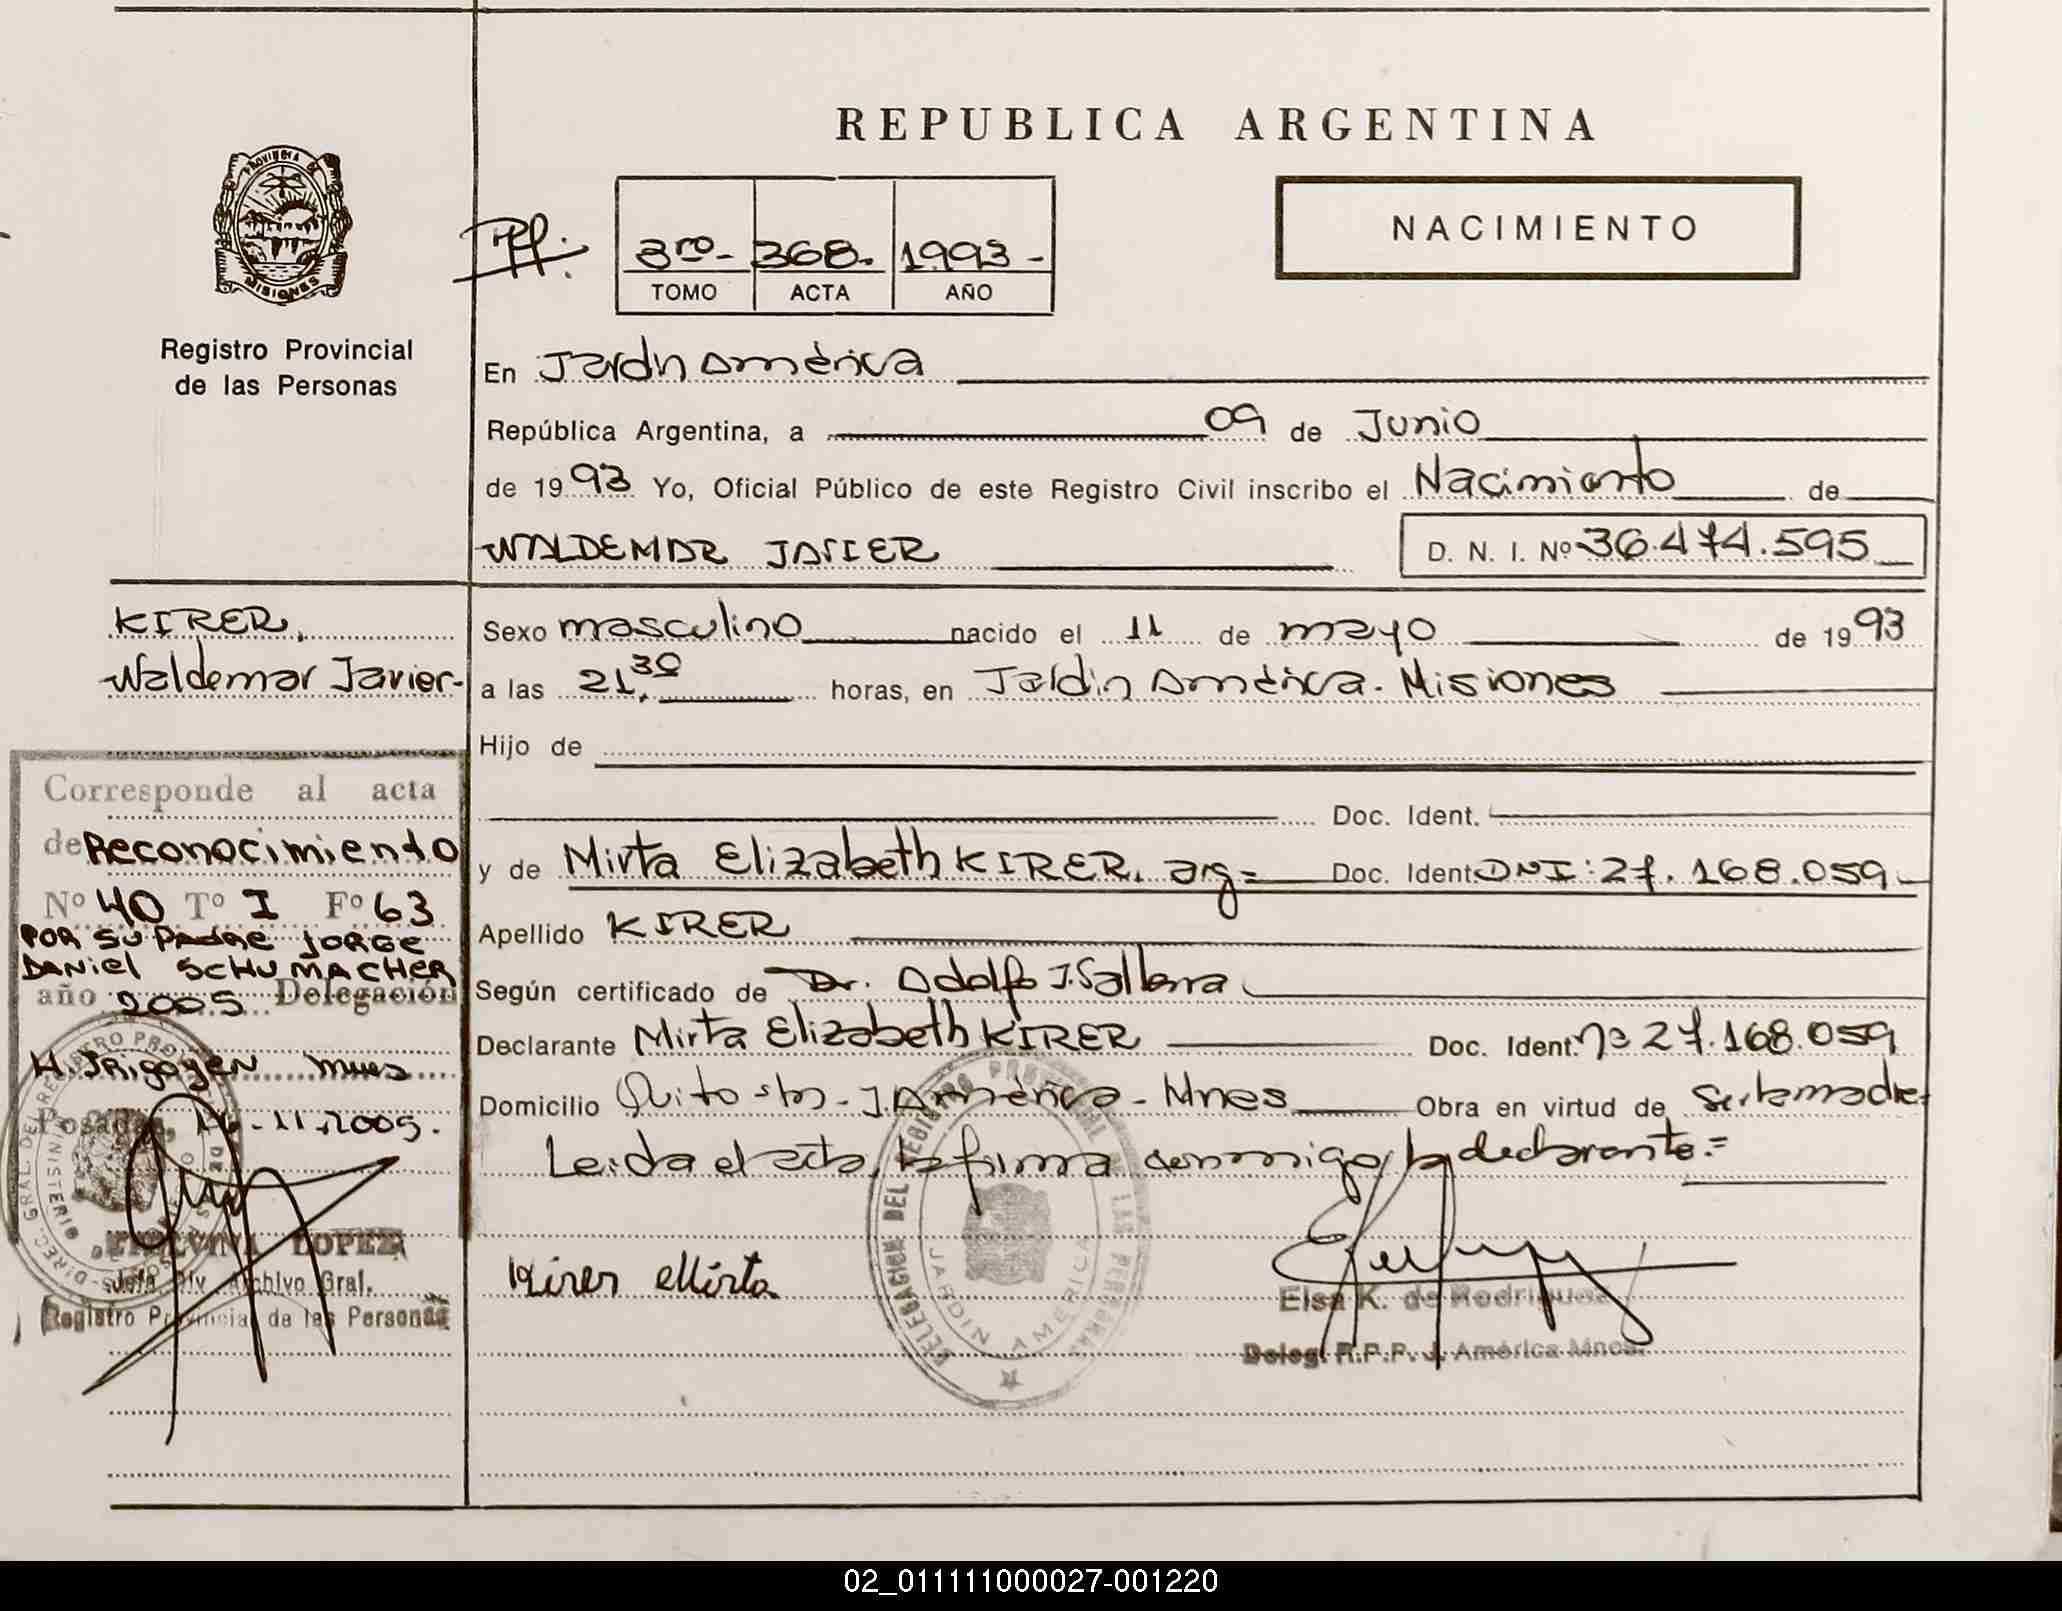 REPUBLICA ARGENTINA
PROVINCIA DE
MISIONES
Registro Provincial
de las Personas
3ro- 368. 1993-
TOMO ACTA AÑO
NACIMIENTO
En Jardin América
República Argentina, a 09 de Junio
de 1993 Yo, Oficial Público de este Registro Civil inscribo el Nacimiento de
WALDEMAR JAVIER D. N. I. Nº 36.474.595
KIRER,
Waldemar Javier-
Sexo masculino nacido el 11 de mayo de 1993
a las 21,30 horas, en Jardin América. Misiones
Hijo de
Doc. Ident.
y de Mirta Elizabeth KIRER, arg= Doc. Ident. DNI: 27.168.059
Apellido KIRER
Según certificado de Dr. Adolfo J.
Declarante Mirta Elizabeth KIRER Doc. Ident. nº 27.168.059
Domicilio Quito s/n - J. América - Mnes Obra en virtud de Ser la madre.
Leida el acta, la firma conmigo la declarante.=
Kirer Mirta
DELEGACION DEL REGISTRO PROVINCIAL DE LAS PERSONAS
JARDIN AMERICA
Elsa K. de Rodriguez
Deleg. R.P.P. J. América Mnes.
Corresponde al acta
de Reconocimiento
Nº 40 Tº I Fº 63
POR SU PADRE JORGE
DANIEL SCHUMACHER
año 2005 Delegación
H. Irigoyen Mnes
Posadas, -11-2005.
LOPEZ
Jefa Div. Archivo Gral.
Registro Provincial de las Personas
02_011111000027-001220